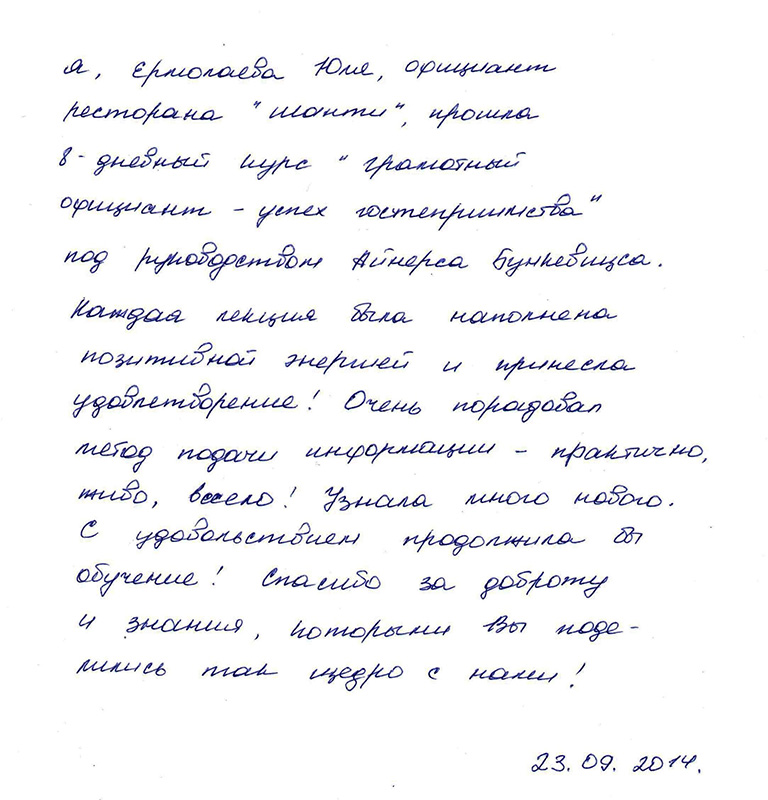 я, Ермолаева Юля, официант
ресторана "Шанти", прошла
8-дневный курс "Грамотный
официант - успех гостеприимства"
под руководством Айнерса Бункевицса.
Каждая лекция была наполнена
позитивной энергией и принесла
удовлетворение! Очень порадовал
метод подачи информации - практично,
живо, весело! Узнала много нового.
С удовольствием продолжила бы
обучение! Спасибо за доброту
и знания, которыми Вы поде-
лились так щедро с нами!
23.09.2014.